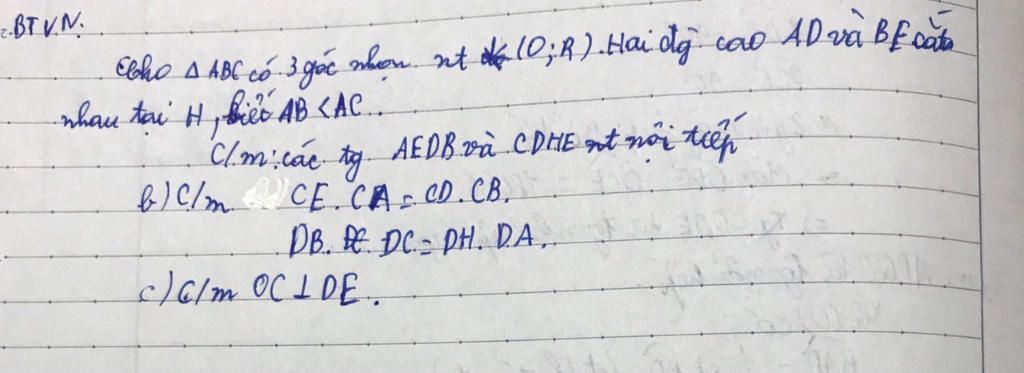 BTVN.
Cho Δ ABC có 3 góc nhọn nt (O;R). Hai đg cao AD và BE cắt
nhau tại H, biết AB < AC.
C/m: các tg AEDB và CDHE nt nội tiếp
b) C/m CE. CA = CD. CB.
DB. DC = DH. DA.
c) C/m OC ⊥ DE.